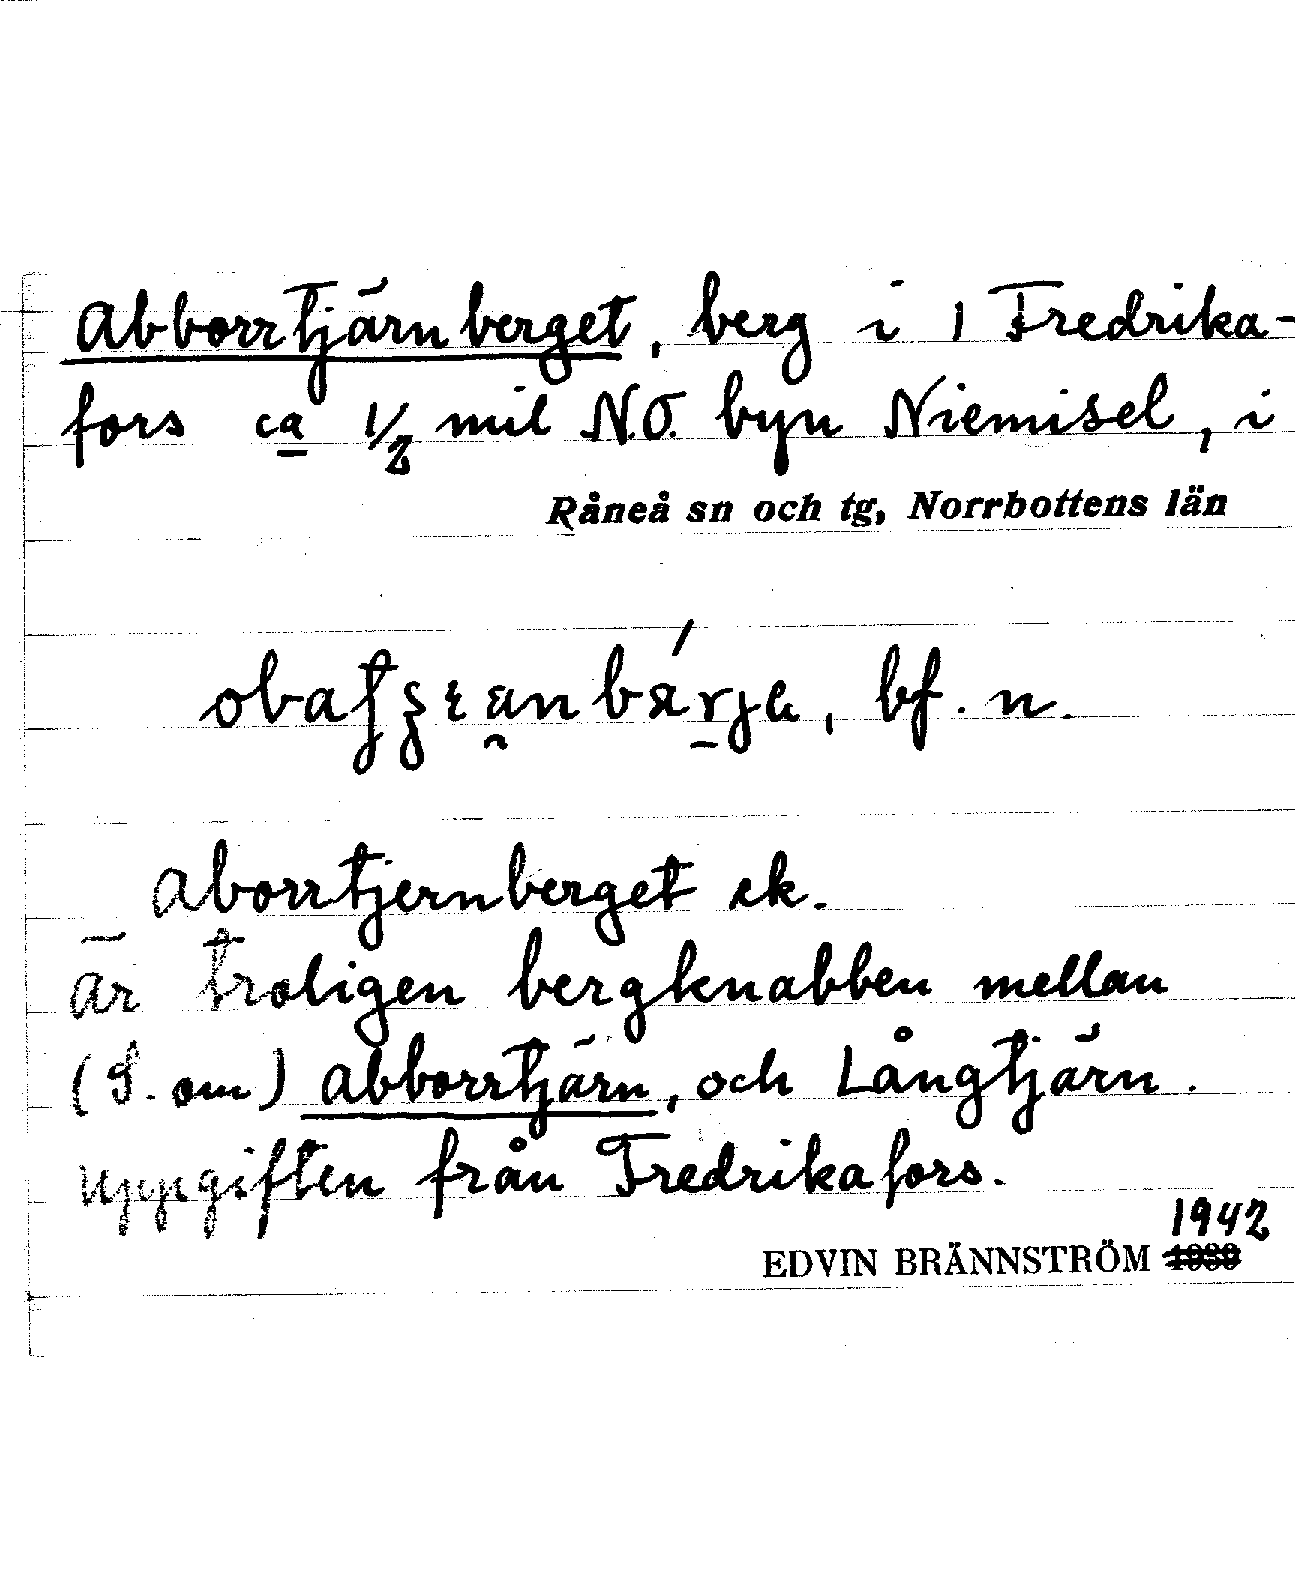 Abborrtjärnberget, berg i 1 Fredrika-
fors ca 1/2 mil N.O. byn Niemisel, i
Råneå sn och tg, Norrbottens län
bf. n.
Aborrtjernberget ek.
är troligen bergknabben mellan
(S. om) Abborrtjärn, och Långtjärn.
Uppgiften från Fredrikafors.
1942
EDVIN BRÄNNSTRÖM 1939